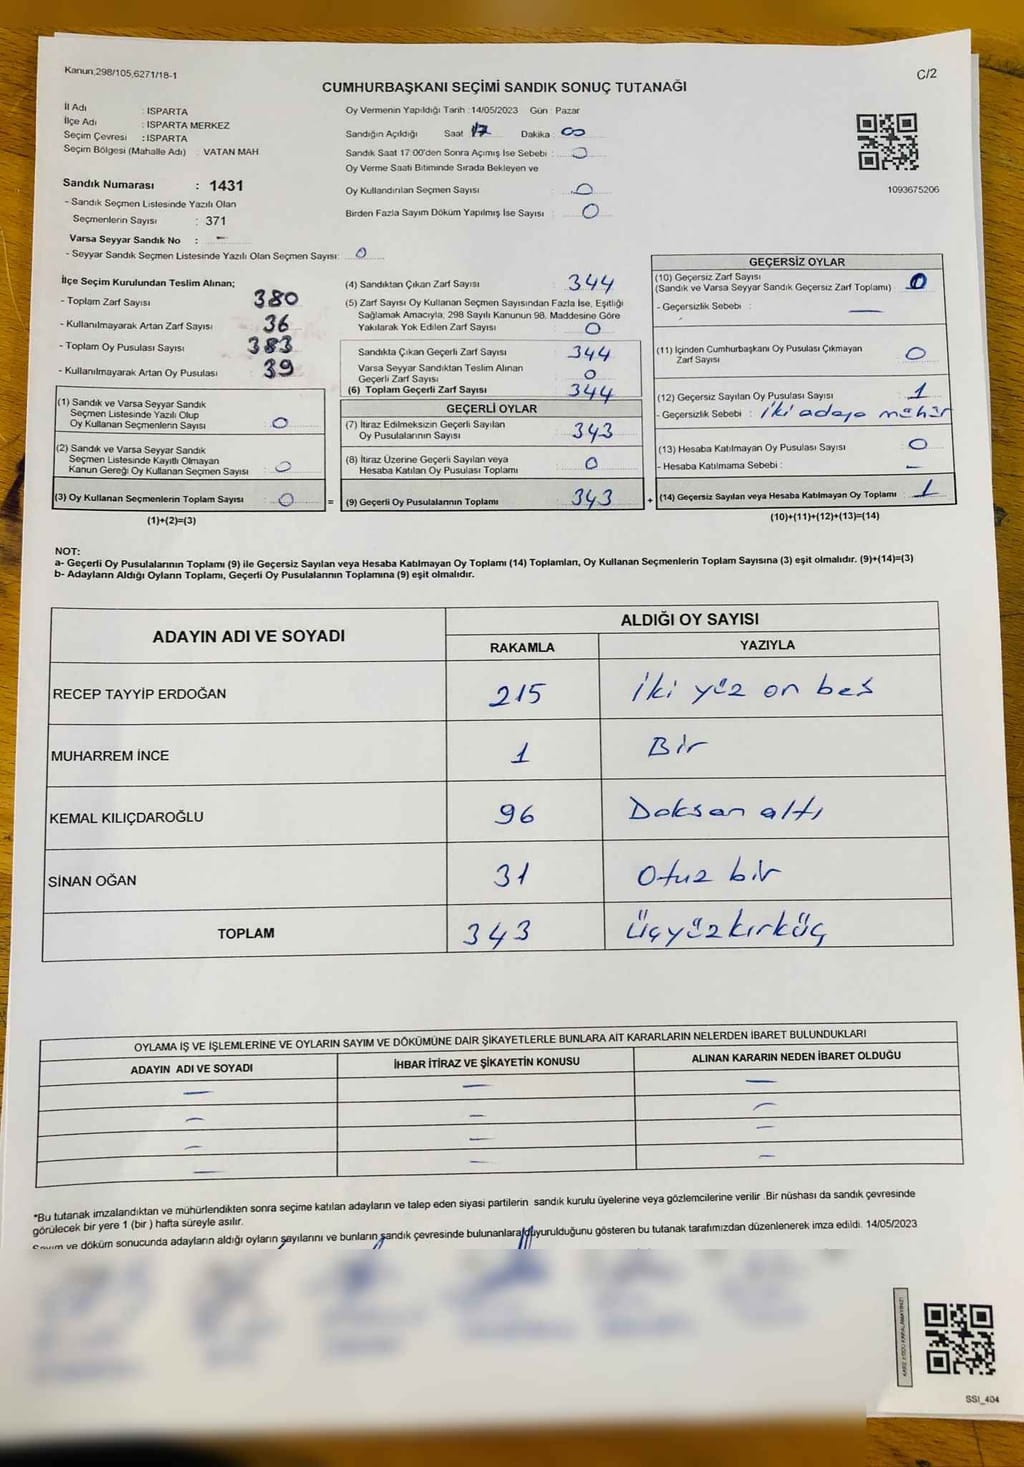 Kanun;298/105,6271/18-1
C/2
CUMHURBAŞKANI SEÇİMİ SANDIK SONUÇ TUTANAĞI
İl Adı : ISPARTA
İlçe Adı : ISPARTA MERKEZ
Seçim Çevresi : ISPARTA
Seçim Bölgesi (Mahalle Adı) : VATAN MAH
Sandık Numarası : 1431
- Sandık Seçmen Listesinde Yazılı Olan
Seçmenlerin Sayısı : 371
Varsa Seyyar Sandık No : -
- Seyyar Sandık Seçmen Listesinde Yazılı Olan Seçmen Sayısı: 0
Oy Vermenin Yapıldığı Tarih :14/05/2023 Gün : Pazar
Sandığın Açıldığı Saat 17 Dakika : 00
Sandık Saat 17:00'den Sonra Açımış İse Sebebi : 0
Oy Verme Saati Bitiminde Sırada Bekleyen ve
Oy Kullandırılan Seçmen Sayısı : 0
Birden Fazla Sayım Döküm Yapılmış İse Sayısı : 0
1093675206
İlçe Seçim Kurulundan Teslim Alınan;
- Toplam Zarf Sayısı 380
- Kullanılmayarak Artan Zarf Sayısı 36
- Toplam Oy Pusulası Sayısı 383
- Kullanılmayarak Artan Oy Pusulası 39
(1) Sandık ve Varsa Seyyar Sandık
Seçmen Listesinde Yazılı Olup
Oy Kullanan Seçmenlerin Sayısı 0
(2) Sandık ve Varsa Seyyar Sandık
Seçmen Listesinde Kayıtlı Olmayan
Kanun Gereği Oy Kullanan Seçmen Sayısı 0
(3) Oy Kullanan Seçmenlerin Toplam Sayısı 0 =
(1)+(2)=(3)
(4) Sandıktan Çıkan Zarf Sayısı 344
(5) Zarf Sayısı Oy Kullanan Seçmen Sayısından Fazla İse, Eşitliği
Sağlamak Amacıyla, 298 Sayılı Kanunun 98. Maddesine Göre
Yakılarak Yok Edilen Zarf Sayısı 0
Sandıkta Çıkan Geçerli Zarf Sayısı 344
Varsa Seyyar Sandıktan Teslim Alınan
Geçerli Zarf Sayısı 0
(6) Toplam Geçerli Zarf Sayısı 344
GEÇERLİ OYLAR
(7) İtiraz Edilmeksizin Geçerli Sayılan
Oy Pusulalarının Sayısı 343
(8) İtiraz Üzerine Geçerli Sayılan veya
Hesaba Katılan Oy Pusulası Toplamı 0
(9) Geçerli Oy Pusulalarının Toplamı 343 +
GEÇERSİZ OYLAR
(10) Geçersiz Zarf Sayısı
(Sandık ve Varsa Seyyar Sandık Geçersiz Zarf Toplamı) : 0
- Geçersizlik Sebebi : —
(11) İçinden Cumhurbaşkanı Oy Pusulası Çıkmayan
Zarf Sayısı 0
(12) Geçersiz Sayılan Oy Pusulası Sayısı : 1
- Geçersizlik Sebebi : iki adaya mühür
(13) Hesaba Katılmayan Oy Pusulası Sayısı : 0
- Hesaba Katılmama Sebebi : -
(14) Geçersiz Sayılan veya Hesaba Katılmayan Oy Toplamı : 1
(10)+(11)+(12)+(13)=(14)
NOT:
a- Geçerli Oy Pusulalarının Toplamı (9) ile Geçersiz Sayılan veya Hesaba Katılmayan Oy Toplamı (14) Toplamları, Oy Kullanan Seçmenlerin Toplam Sayısına (3) eşit olmalıdır. (9)+(14)=(3)
b- Adayların Aldığı Oyların Toplamı, Geçerli Oy Pusulalarının Toplamına (9) eşit olmalıdır.
ADAYIN ADI VE SOYADI
ALDIĞI OY SAYISI
RAKAMLA YAZIYLA
RECEP TAYYİP ERDOĞAN 215 iki yüz on beş
MUHARREM İNCE 1 Bir
KEMAL KILIÇDAROĞLU 96 Doksan altı
SİNAN OĞAN 31 Otuz bir
TOPLAM 343 Üçyüzkırküç
OYLAMA İŞ VE İŞLEMLERİNE VE OYLARIN SAYIM VE DÖKÜMÜNE DAİR ŞİKAYETLERLE BUNLARA AİT KARARLARIN NELERDEN İBARET BULUNDUKLARI
ADAYIN ADI VE SOYADI İHBAR İTİRAZ VE ŞİKAYETİN KONUSU ALINAN KARARIN NEDEN İBARET OLDUĞU
— — —
— — —
— — —
— — —
*Bu tutanak imzalandıktan ve mühürlendikten sonra seçime katılan adayların ve talep eden siyasi partilerin sandık kurulu üyelerine veya gözlemcilerine verilir .Bir nüshası da sandık çevresinde
görülecek bir yere 1 (bir ) hafta süreyle asılır.
Sayım ve döküm sonucunda adayların aldığı oyların sayılarını ve bunların sandık çevresinde bulunanlara duyurulduğunu gösteren bu tutanak tarafımızdan düzenlenerek imza edildi. 14/05/2023
SSI_404